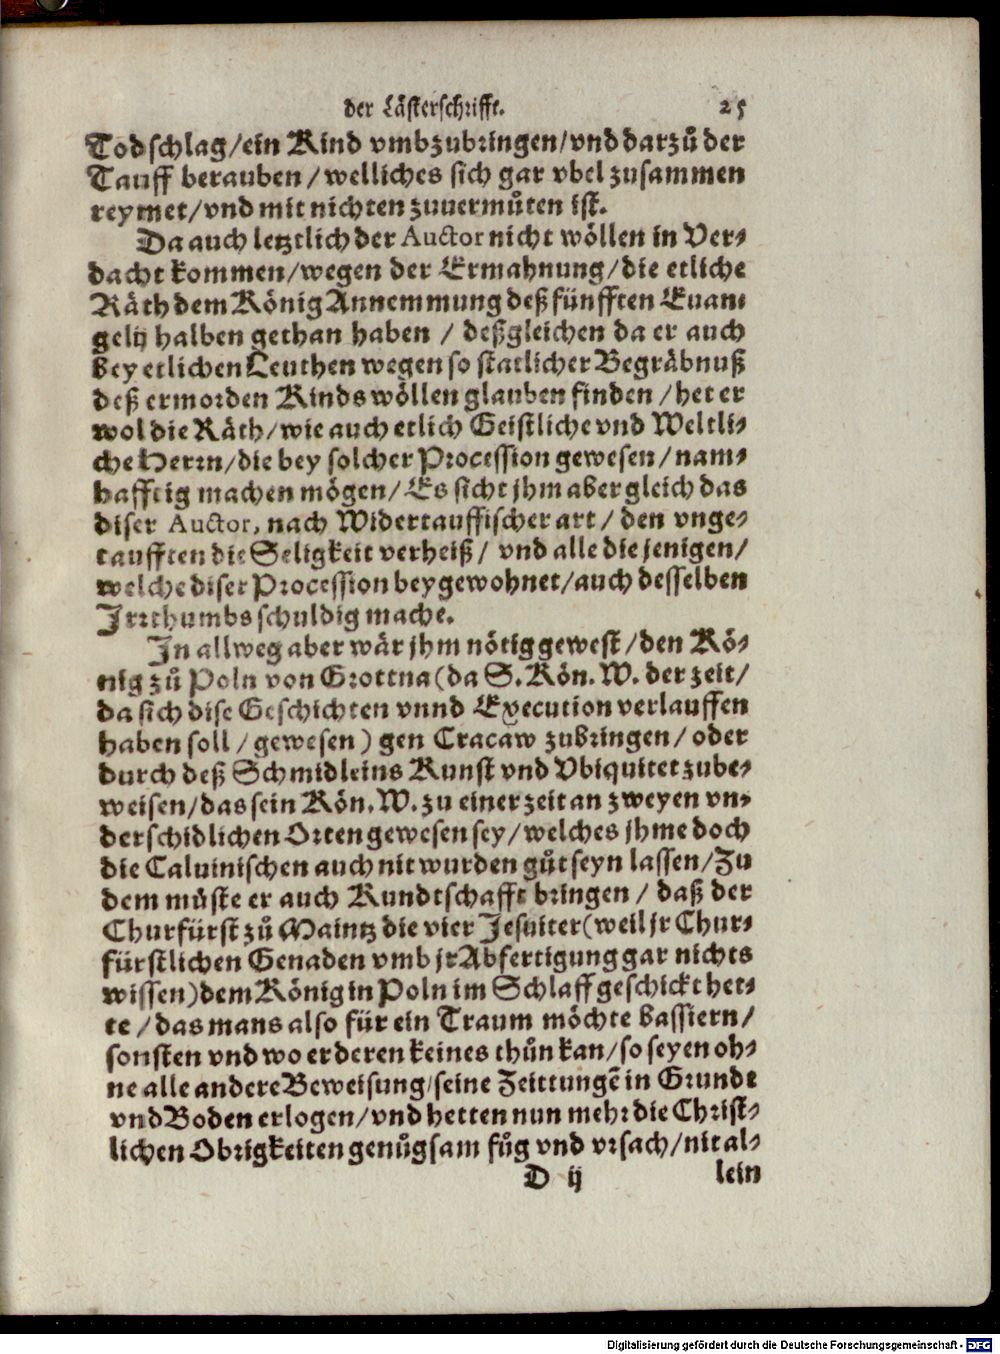 der Lästerschrifft. 25
Todschlag/ein Kind vmbzubringen/vnd darzů der
Tauff berauben/welliches sich gar vbel zusammen
reymet/vnd mit nichten zuuermůten ist.
Da auch letztlich der Auctor nicht wöllen in Ver⸗
dacht kommen/wegen der Ermahnung/die etliche
Räth dem König Annemmung deß fünfften Euan⸗
gelij halben gethan haben / deßgleichen da er auch
bey etlichen Leuthen wegen so statlicher Begräbnuß
deß ermorden Kinds wöllen glauben finden /het er
wol die Räth/wie auch etlich Geistliche vnd Weltli⸗
che Herrn/die bey solcher Procession gewesen/nam⸗
hafftig machen mögen/ Es sicht jhm aber gleich das
diser Auctor, nach Widertauffischer art / den vnge⸗
taufften die Seligkeit verheiß/ vnd alle die jenigen/
welche diser Procession beygewohnet/auch desselben
Irrthumbs schuldig mache.
In allweg aber wär jhm nötig gewest/den Kö⸗
nig zů Poln von Grottna(da S. Kön. W. der zeit/
da sich dise Geschichten vnnd Execution verlauffen
haben soll / gewesen) gen Cracaw zubringen/ oder
durch deß Schmidleins Kunst vnd Vbiquitet zube⸗
weisen/das sein Kön. W. zu einer zeit an zweyen vn⸗
derschidlichen Orten gewesen sey/welches jhme doch
die Caluinischen auch nit wurden gůt seyn lassen/Zu
dem müste er auch Kundtschafft bringen / daß der
Churfürst zů Maintz die vier Jesuiter(weil jr Chur⸗
fürstlichen Genaden vmb jr Abfertigung gar nichts
wissen)dem König in Poln im Schlaff geschickt het⸗
te /das mans also für ein Traum möchte bassiern/
sonsten vnd wo er deren keines thůn kan/so seyen oh⸗
ne alle andere Beweisung/seine Zeittungē in Grundt
vnd Boden erlogen/vnd hetten nun mehr die Christ⸗
lichen Obrigkeiten genůgsam fůg vnd vrsach/nit al⸗
D ij lein
Digitalisierung gefördert durch die Deutsche Forschungsgemeinschaft - DFG